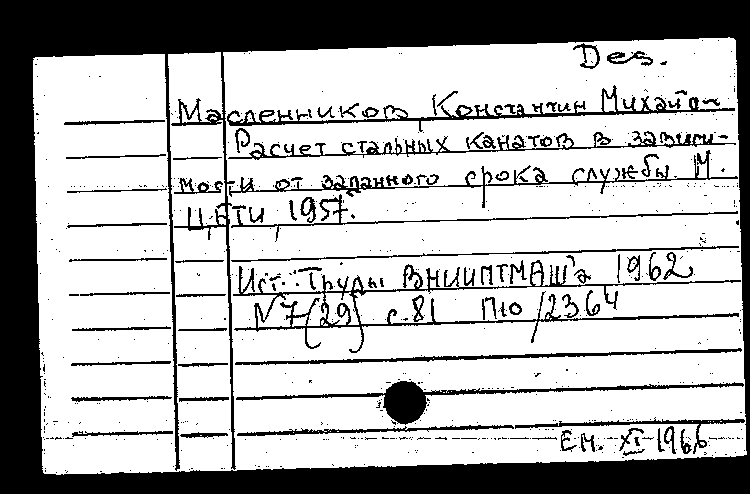 Des.
Масленников, Константин Михайл-
Расчет стальных канатов в зависи-
мости от заданного срока службы. М.
ЦБТИ, 1957.
Ист.: Труды ВНИИПТМАШ'а 1962
№7(29) с.81 П10/2364
Ем. XI 1966